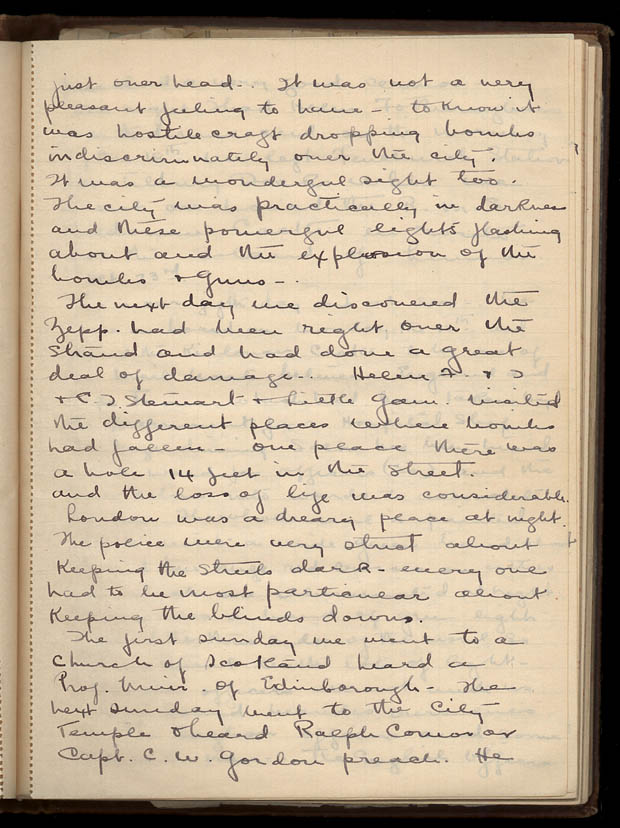 just over head. It was not a very
pleasant feeling to have - to know it
was hostile craft dropping bombs
indiscriminately over the city.
It was a wonderful sight too.
The city was practically in darkness
and these powerful lights flashing
about and the explosion of the
bombs + Guns -.
The next day we discovered the
Zepp. had been right over the
Strand and had done a great
deal of damage. Helen F. + I
+ C. J. Stewart + little Gam. visited
the different places where bombs
had fallen - one place there was
a hole 14 feet in the street.
and the loss of life was considerable.
London was a dreary place at night.
The police were very strict about
Keeping the streets dark - every one
had to be most particular about
Keeping the blinds down.
The first Sunday we went to a
Church of Scotland heard a
Prof. Muir. of Edinborough - The
next Sunday went to the City
Temple + heard Ralph Connor or
Capt. C. W. Gordon preach. He